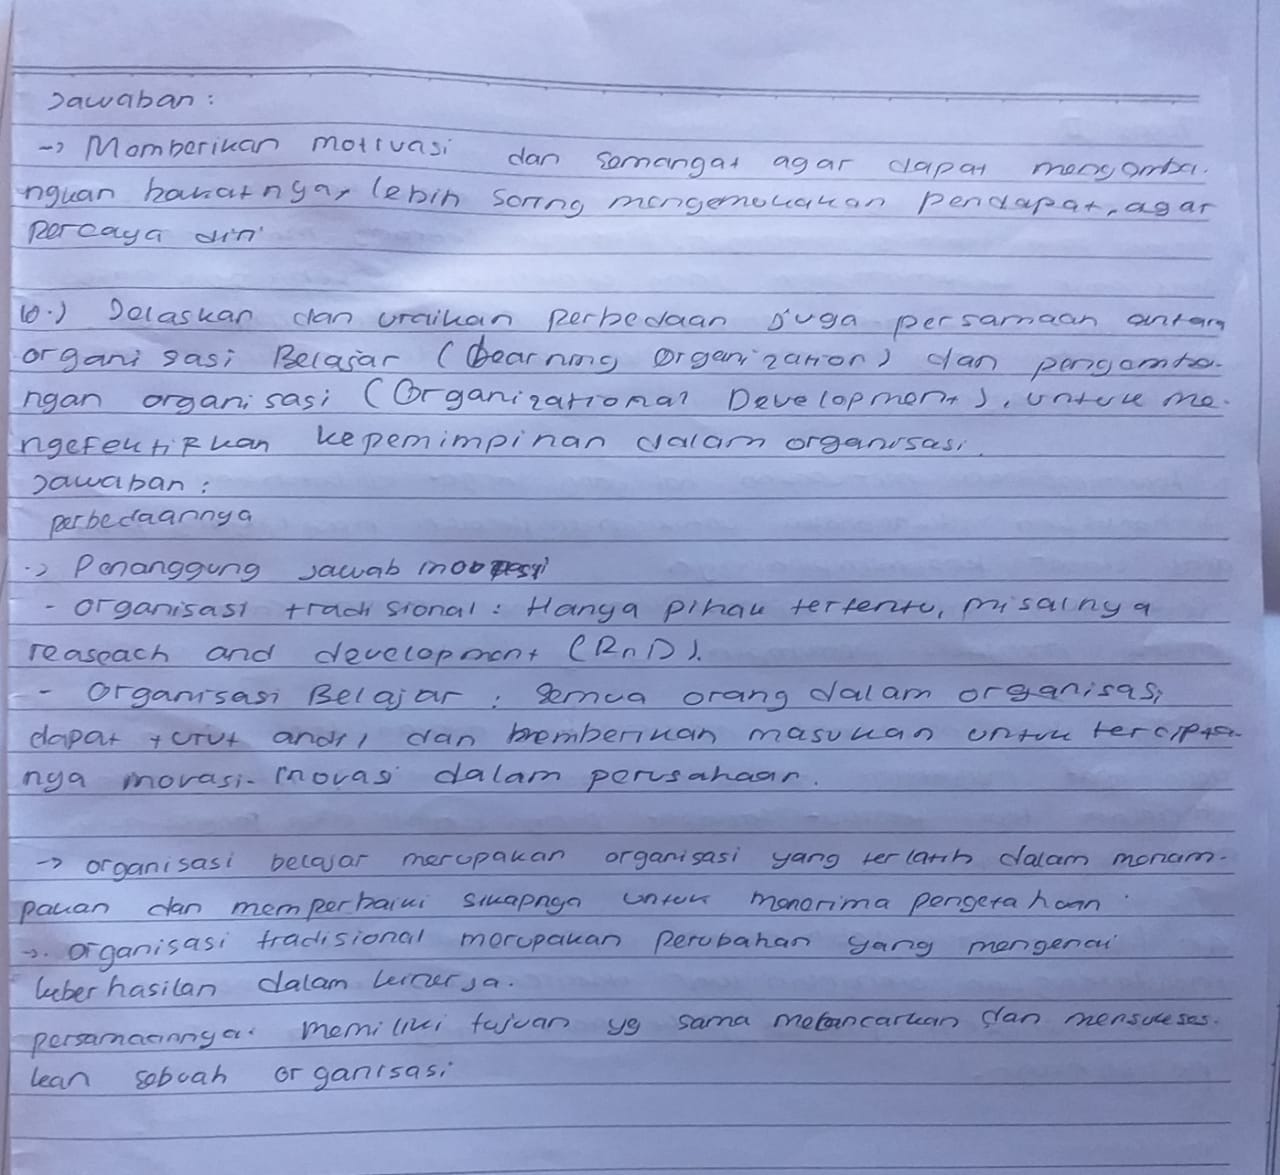 Jawaban :
-> Memberikan motivasi dan semangat agar dapat mengemba-
ngkan bakatnya, lebih sering mengemukakan pendapat, agar
percaya diri
10.) Jelaskan dan uraikan perbedaan juga persamaan antara
organisasi Belajar (Learning Organization) dan pengemba-
ngan organisasi (Organizational Development), untuk me-
ngefektifkan kepemimpinan dalam organisasi.
Jawaban :
perbedaannya
-> Penanggung jawab inovasi
- organisasi tradisional : Hanya pihak tertentu, misalnya
reaseach and development (RnD).
- Organisasi Belajar : Semua orang dalam organisasi
dapat turut andil dan memberikan masukan untuk tercipta-
nya inovasi-inovasi dalam perusahaan.
-> organisasi belajar merupakan organisasi yang terlatih dalam menam-
pakan dan memperbaiki sikapnya untuk menerima pengetahuan
->. organisasi tradisional merupakan perubahan yang mengenai
keberhasilan dalam kinerja.
persamaannya. memiliki tujuan yg sama melancarkan dan mensukses-
kan sebuah organisasi